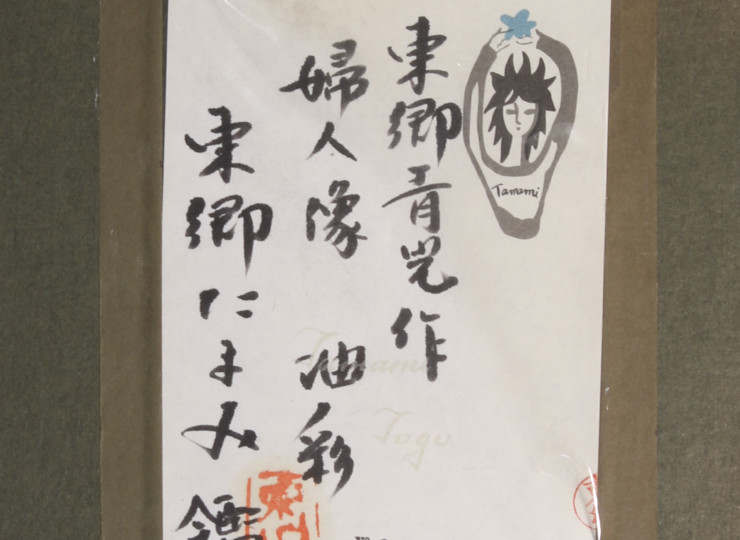 東郷青児作
婦人像　油彩
東郷たまみ鑑
Tamami
Tamami
Togo